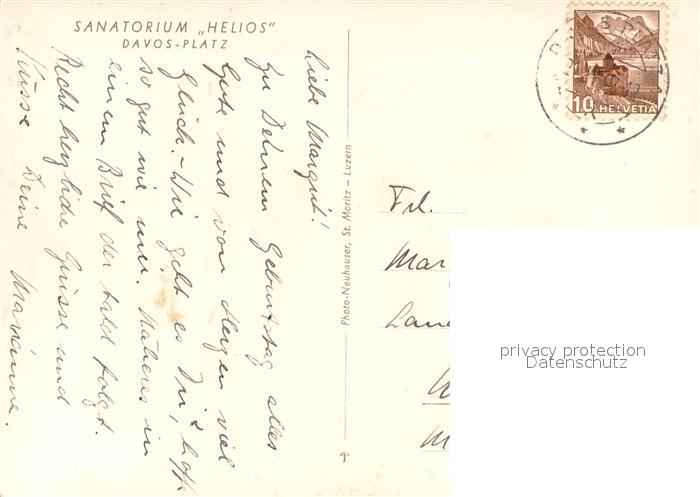 SANATORIUM „HELIOS"
DAVOS-PLATZ
Liebe Margrit!
Zu Deinem Geburtstag alles
Gute und von Herzen viel
Glück. – Wie geht es Dir, hoff.
so gut wie mir. Näheres in
einem Brief der bald folgt.
Recht herzliche Grüsse und
Küsse Deine Marianne.
Photo-Neuhauser, St. Moritz – Luzern
10 HELVETIA
Frl.
Mar
privacy protection
Datenschutz